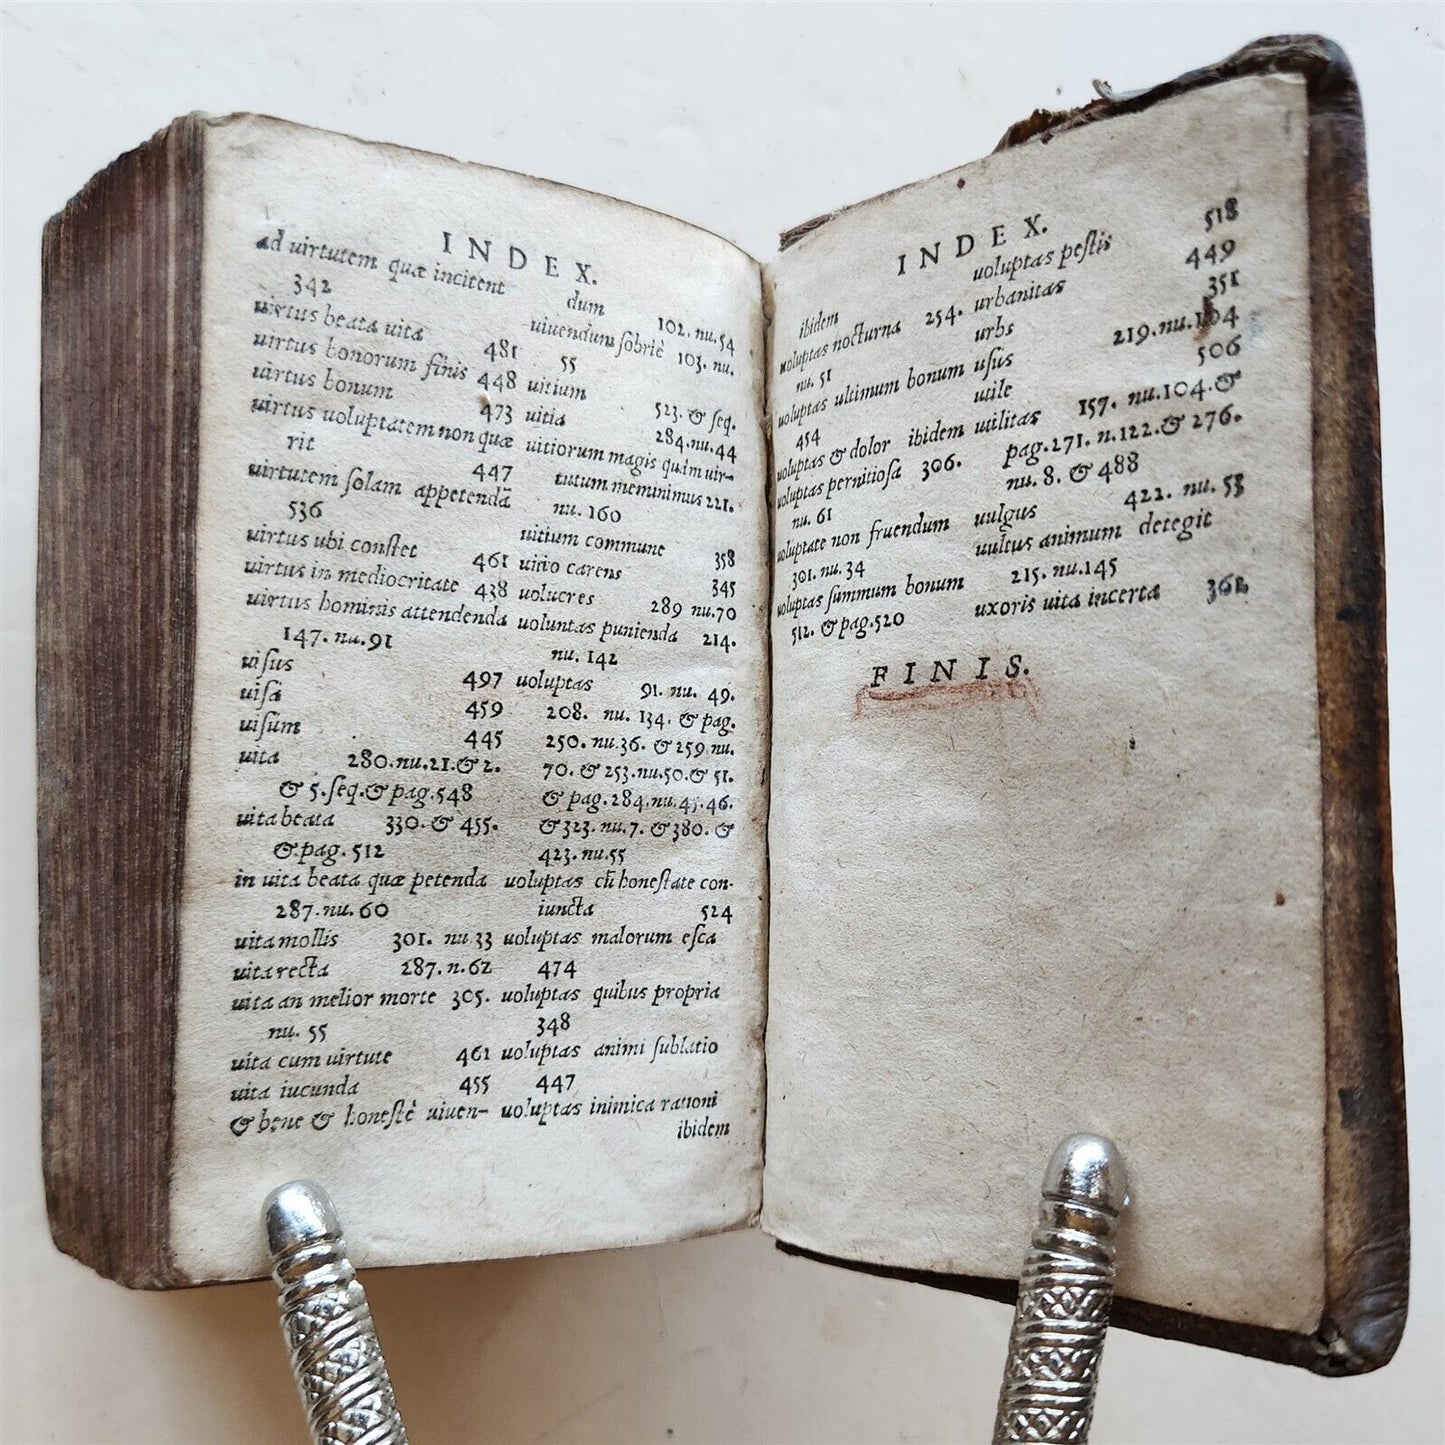 INDEX.
ad uirtutem quæ incitent
342
uirtus beata uita 481
uirtus bonorum finis 448
uirtus bonum 473
uirtus uoluptatem non quæ
rit 447
uirtutem ſolam appetendā
536
uirtus ubi conſtet 461
uirtus in mediocritate 438
uirtus hominis attendenda
147. nu. 91
uiſus 497
uiſa 459
uiſum 445
uita 280. nu. 21. & 2.
& 5. ſeq. & pag. 548
uita beata 330. & 455.
& pag. 512
in uita beata quæ petenda
287. nu. 60
uita mollis 301. nu 33
uita recta 287. n. 62
uita an melior morte 305.
nu. 55
uita cum uirtute 461
uita iucunda 455
& bene & honeſtè uiuen-
dum 102. nu. 54
uiuendum ſobriè 103. nu.
55
uitium 523. & ſeq.
uitia 284. nu. 44
uitiorum magis quàm uir-
tutum meminimus 221.
nu. 160
uitium commune 358
uitio carens 345
uolucres 289 nu. 70
uoluntas punienda 214.
nu. 142
uoluptas 91. nu. 49.
208. nu. 134. & pag.
250. nu. 36. & 259. nu.
70. & 253. nu. 50. & 51.
& pag. 284. nu. 45. 46.
& 323. nu. 7. & 380. &
423. nu. 55
uoluptas cū honeſtate con-
iuncta 524
uoluptas malorum eſca
474
uoluptas quibus propria
348
uoluptas animi ſublatio
447
uoluptas inimica rationi
ibidem
INDEX.
ibidem
uoluptas nocturna 254.
nu. 51
uoluptas ultimum bonum
454
uoluptas & dolor ibidem
uoluptas pernitioſa 306.
nu. 61
uoluptate non fruendum
301. nu. 34
uoluptas ſummum bonum
512. & pag. 520
uoluptas peſtis 518
urbanitas 449
urbs 351
uſus 219. nu. 104
utile 506
utilitas 157. nu. 104. &
pag. 271. n. 122. & 276.
nu. 8. & 488
uulgus 422. nu. 53
uultus animum detegit
215. nu. 145
uxoris uita incerta 362
FINIS.